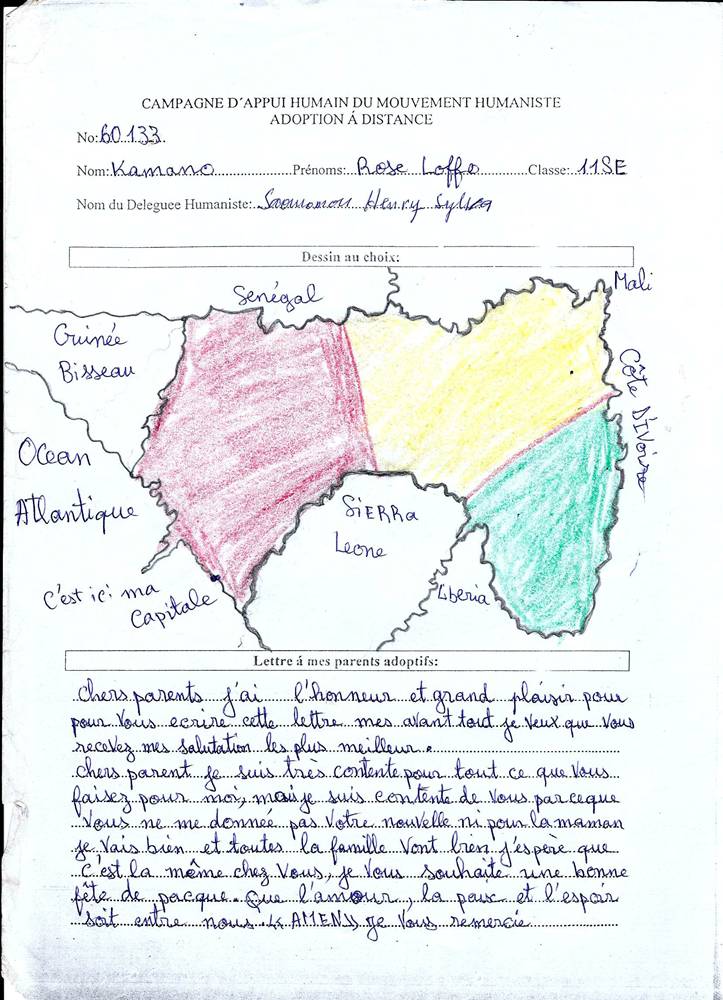 CAMPAGNE D´APPUI HUMAIN DU MOUVEMENT HUMANISTE
ADOPTION Á DISTANCE
No: 60.133
Nom: Kamano Prénoms: Rose Loffo Classe: 11SE
Nom du Deleguee Humaniste: Henry Sylla
Dessin au choix:
Senégal
Mali
Guinée
Bisseau
Côte D'Ivoire
Ocean
Atlantique
SiERRa
Leone
C'est ici ma
Capitale
Liberia
Lettre á mes parents adoptifs:
chers parents j'ai l'honneur et grand plaisir pour
pour Vous ecrire cette lettre mes avant tout je veux que Vous
recevez mes salutation les plus meilleur.
chers parent je suis très contente pour tout ce que Vous
faisez pour moi, mais je suis contente de Vous parceque
Vous ne me donnée pas Votre nouvelle ni pour la maman
je Vais bien et toutes la famille Vont bien j'espère que
c'est la même chez Vous, je Vous souhaite une bonne
fête de pacque. Que l'amour, la paix et l'espoir
soit entre nous << AMEN >> je Vous remercie